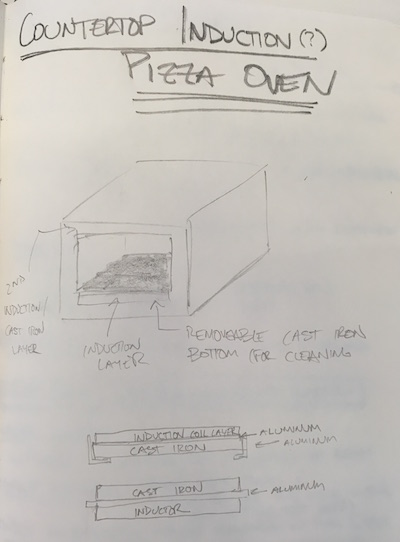 COUNTERTOP INDUCTION(?)
PIZZA OVEN
2ND
INDUCTION/
CAST IRON
LAYER
INDUCTION
LAYER
REMOVEABLE CAST IRON
BOTTOM (FOR CLEANING
INDUCTION COIL LAYER
ALUMINUM
CAST IRON
ALUMINUM
CAST IRON
ALUMINUM
INDUCTOR